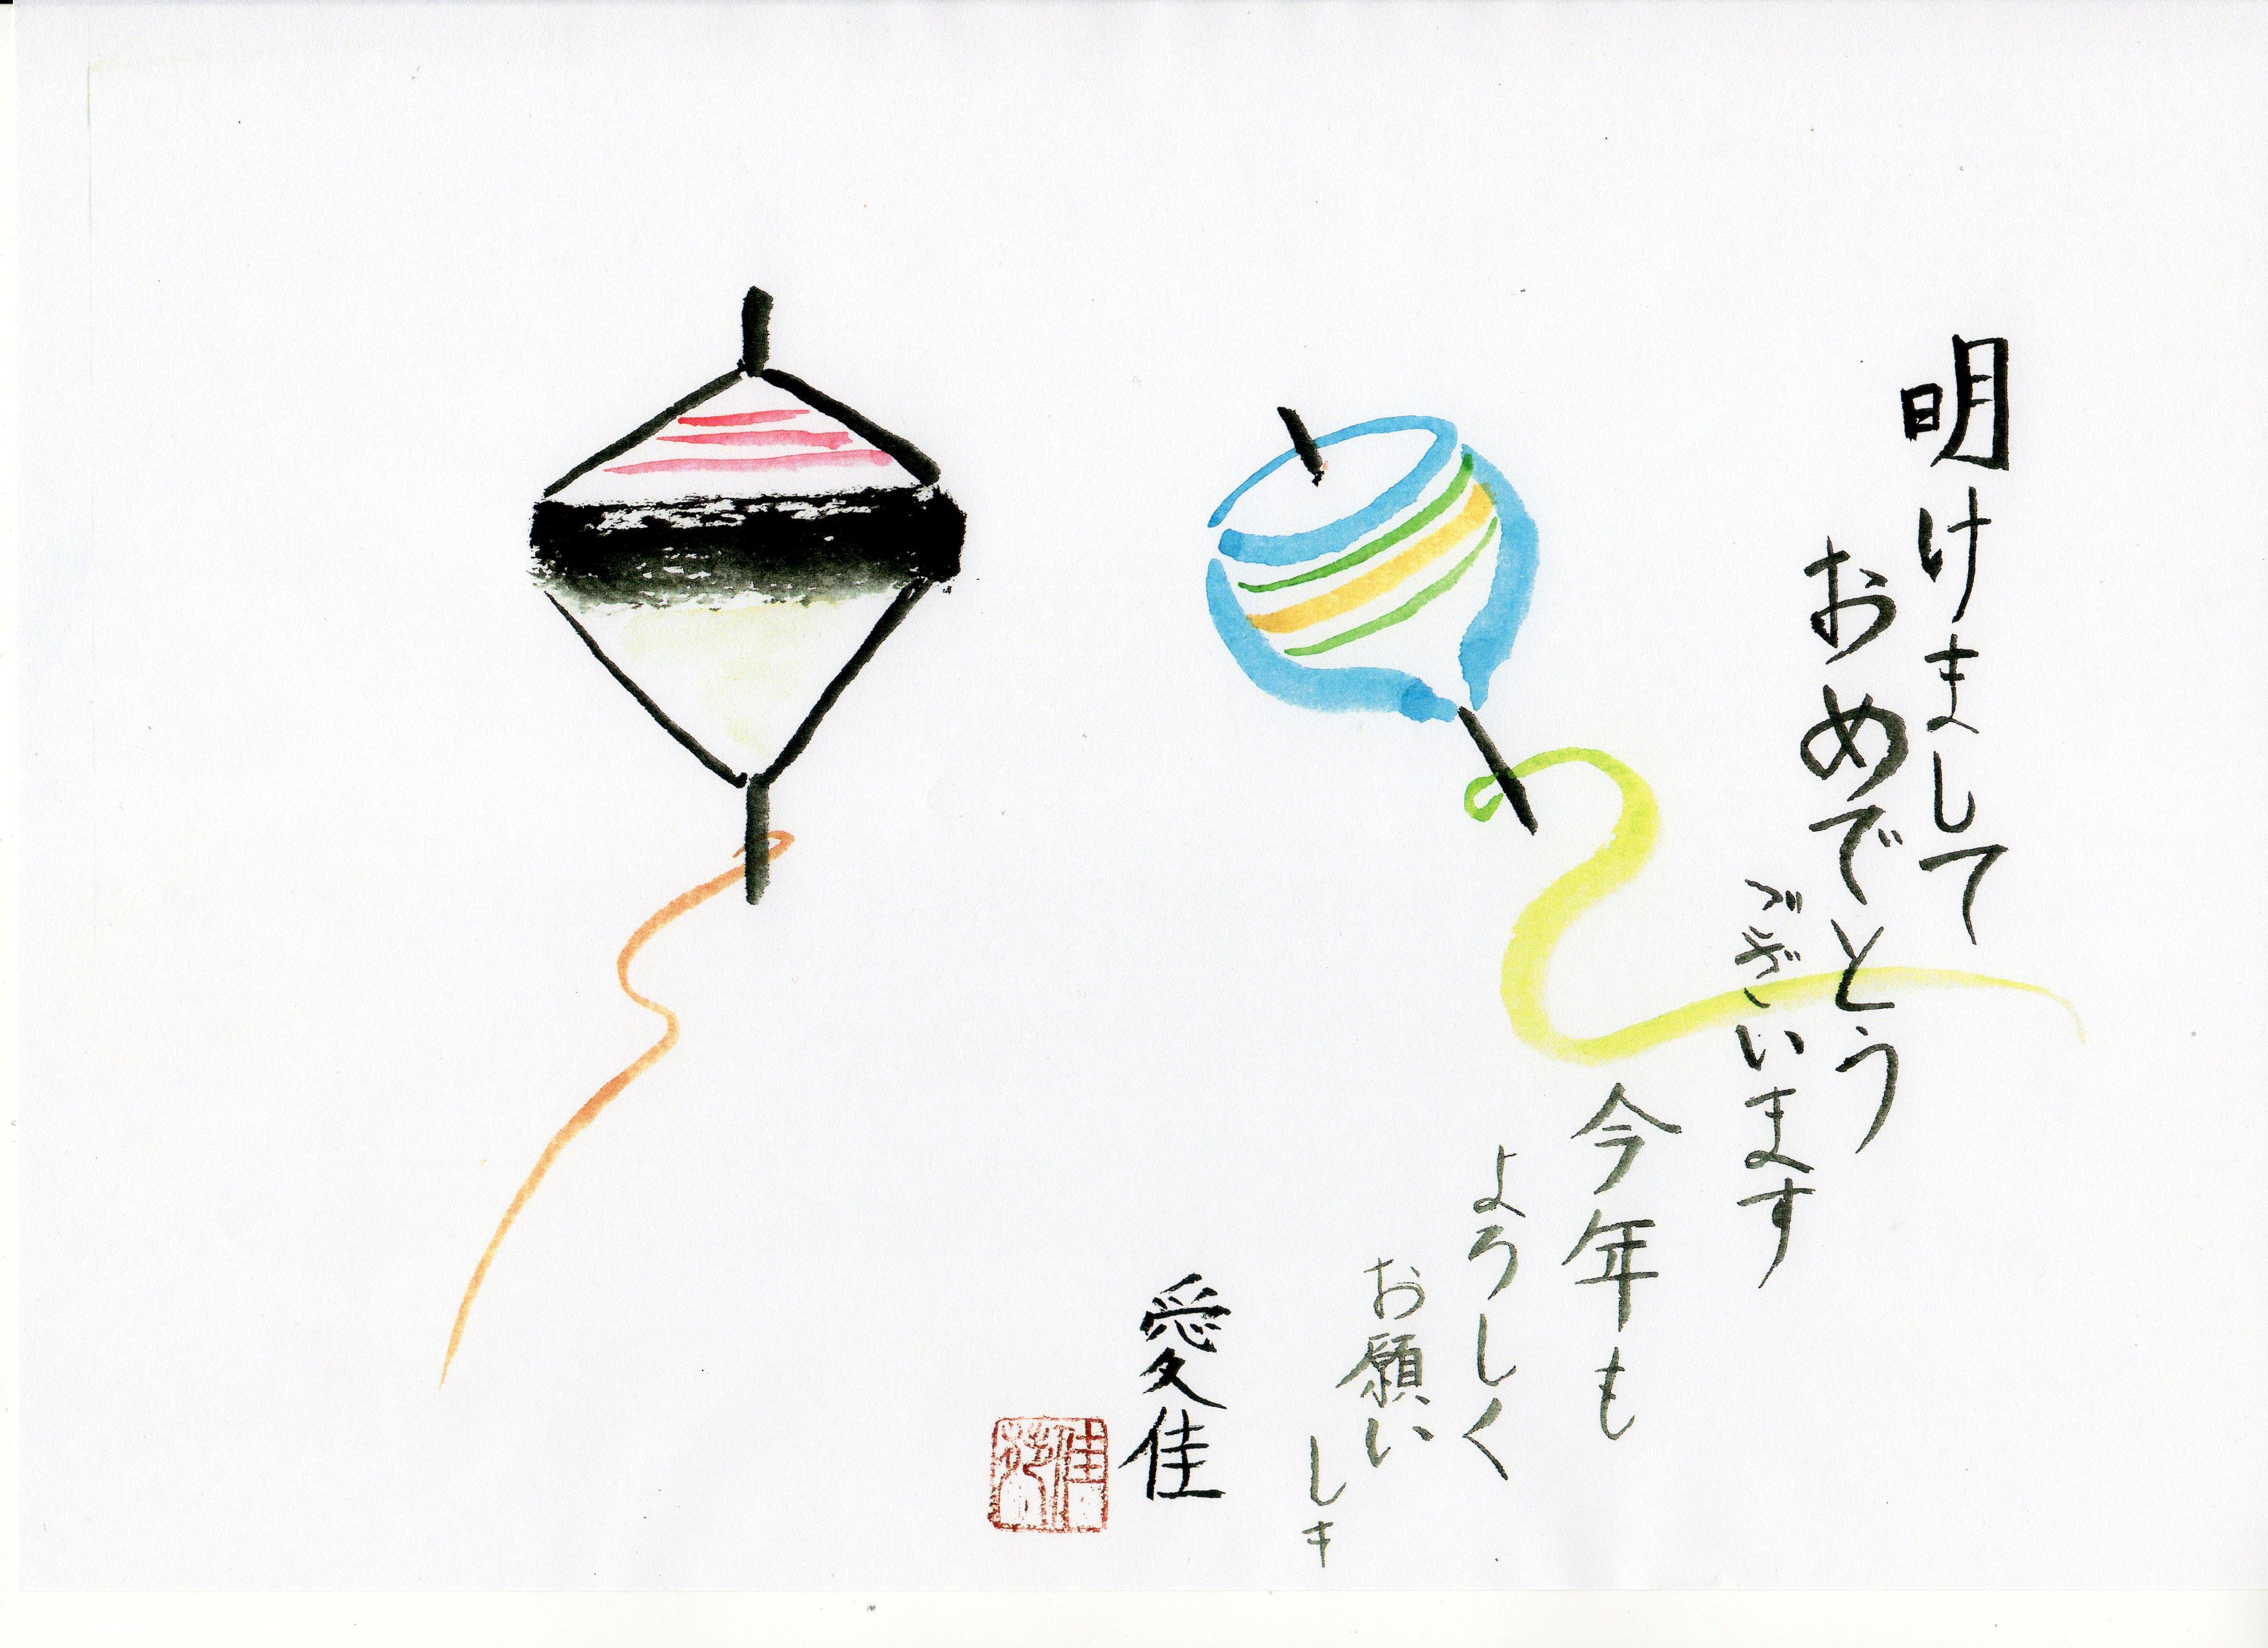 明けまして
おめでとう
ございます
今年も
よろしく
お願い
しま
愛佳